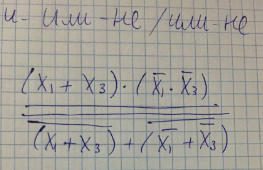 и - или - не / или - не
(X₁ + X₃) · (X̅₁ · X̅₃)
(X₁ + X₃) + (X̅₁ + X̅₃)